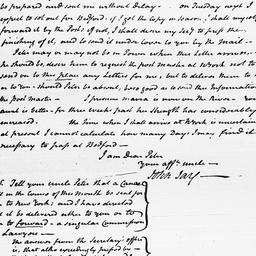 be prepared and send me without Delay. — on Tuesday says I
expect to set out for Bedford. if I get the copy in Season I shall myself
forward it by the Post. if not, I shall desire my Son to press the
finishing of it, and to send it under cover to you by the Mail —
Peter may or may not be in Town when this Letter arrives.
He should be desired then to request the post Master at York not to
send on to this place any Letters for me, but to deliver them to him
or to You. Should Peter be absent, be so good as to send this Information
to the post Master — I presume Maria is now on the River — Your
aunt is better — for three weeks past her Strength has considerably
encreased. The time when I shall arrive at York is uncertain
at present I cannot calculate how many Days I may find it
necessary to pass at Bedford —
I am Dear Peter
Your affte. uncle —
John Jay —
Tell your uncle Peter that a Canoe
in the course of this Month be sent for
to New York; and I have directed
it be delivered either to you or to
to forward — a singular Commission
Lawyer —
The answer from the Secretary's office
is, that altho exceedingly pressed by